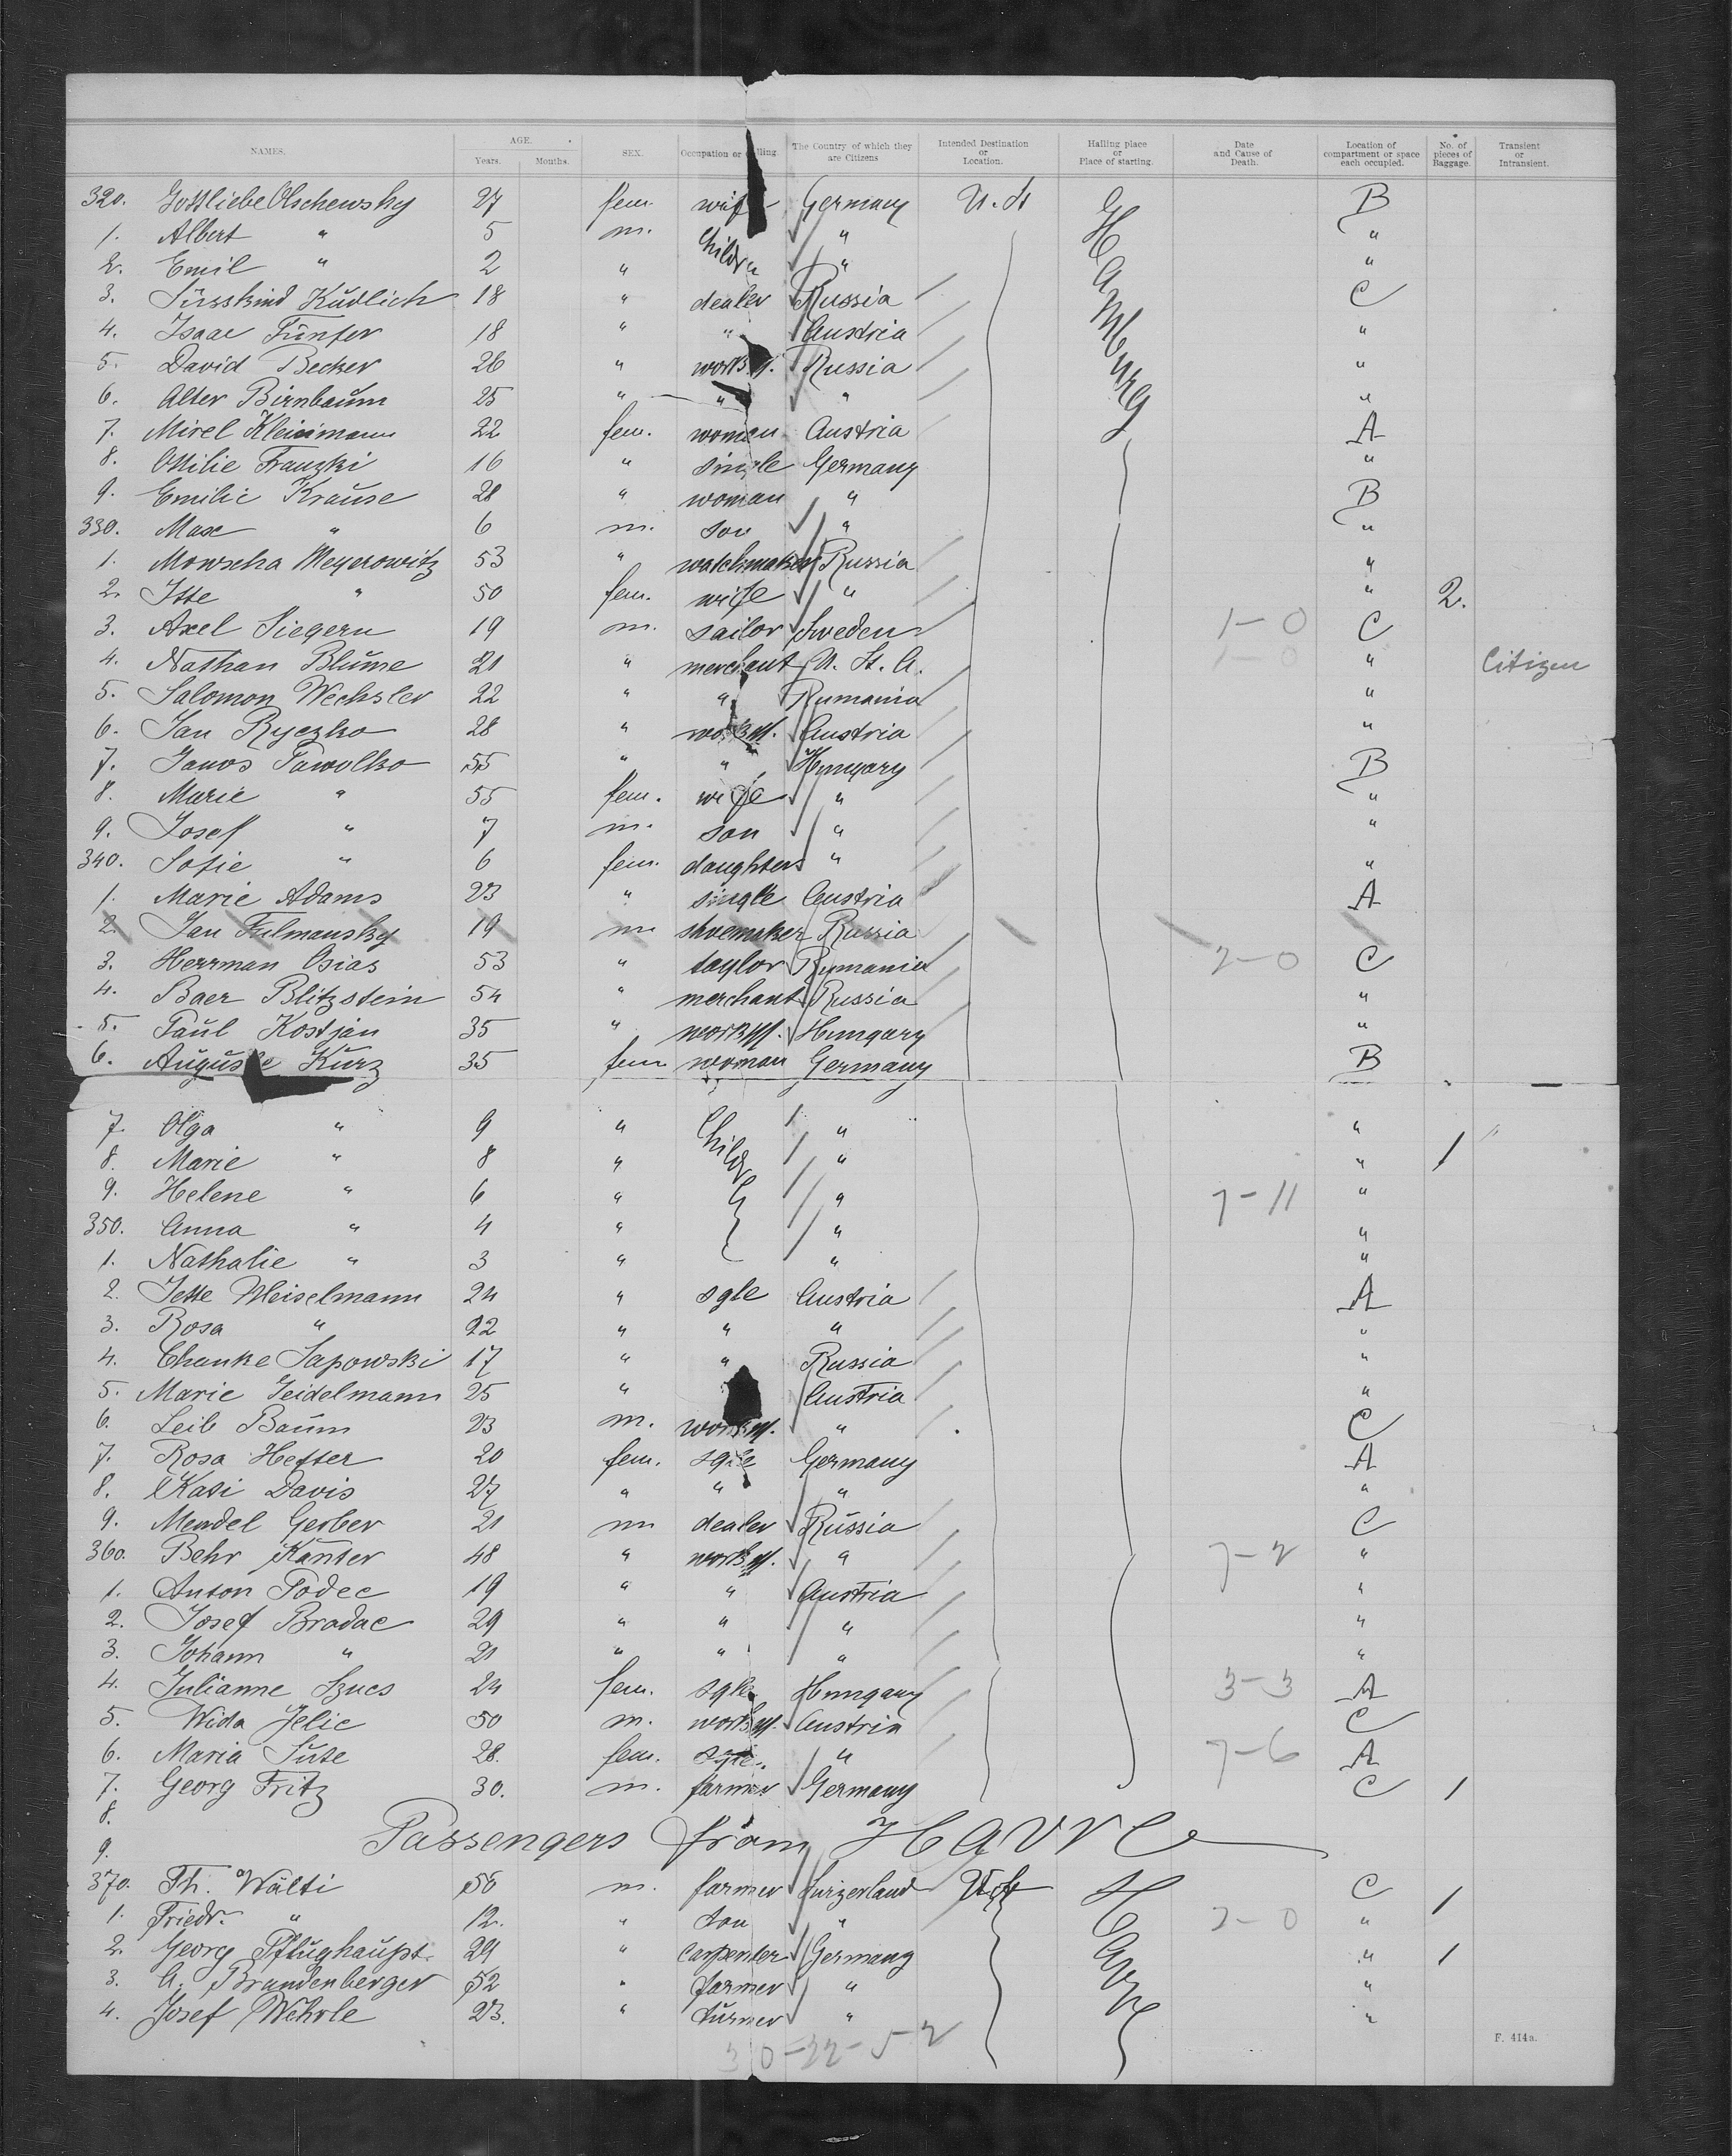 NAMES. AGE. Years. Months. SEX. Occupation or Calling. The Country of which they are Citizens Intended Destination or Location. Halling place or Place of starting. Date and Cause of Death. Location of compartment or space each occupied. No. of pieces of Baggage. Transient or Intransient.
320. Gottliebe Olschewsky 27 fem. wife Germany U. St B
1. Albert " 5 m. Childr " "
2. Emil " 2 " " "
3. Süsskind Kudlich 18 " dealer Russia C
4. Isaac Fünfer 18 " " Austria "
5. David Becker 26 " workm. Russia "
6. Alter Birnbaum 25 " " " "
7. Mirel Kleinmann 22 fem. woman Austria A
8. Ottilie Franzki 16 " single Germany "
9. Emilie Krause 28 " woman " B
330. Max " 6 m. son " "
1. Mowscha Meyerowitz 53 " watchmaker Russia "
2. Itte " 50 fem. wife " " 2.
3. Axel Siegern 19 m. sailor Sweden 1-0 C
4. Nathan Blume 21 " merchant U. St. A. 1-0 " Citizen
5. Salomon Wechsler 22 " " Rumania "
6. Jan Ryczko 28 " workm. Austria "
7. Janos Pawolko 55 " " Hungary B
8. Marie " 55 fem. wife " "
9. Josef " 7 m. son " "
340. Sofie " 6 fem. daughter " "
1. Marie Adams 23 " single Austria A
2. Jan Fulmansky 19 m shoemaker Russia
3. Herrman Osias 53 " taylor Rumania 2-0 C
4. Baer Blitzstein 54 " merchant Russia "
5. Paul Kostjan 35 " workm. Hungary "
6. Auguste Kurz 35 fem woman Germany B
7. Olga " 9 " Childr " "
8. Marie " 8 " " " 1
9. Helene " 6 " " 7-11 "
350. Anna " 4 " " "
1. Nathalie " 3 " " "
2. Jette Meiselmann 24 " sgle Austria A
3. Rosa " 22 " " " "
4. Chanke Sapowski 17 " " Russia "
5. Marie Seidelmann 25 " Austria "
6. Leib Baum 23 m. workm. " C
7. Rosa Hefter 20 fem. sgle Germany A
8. Kati Davis 27 " " " "
9. Mendel Gerber 21 m dealer Russia C
360. Behr Kanter 48 " workm. " 7-2 "
1. Anton Podec 19 " " Austria "
2. Josef Bradac 29 " " " "
3. Johann " 21 " " " "
4. Julianne Szucs 24 fem. sgle Hungary 3-3 A
5. Wida Jelic 50 m. workm. Austria C
6. Maria Sute 28. fem. sgle. " 7-6 A
7. Georg Fritz 30. m. farmer Germany C 1
Hamburg
8.
9. Passengers from Havre
370. Th. Wälti 56 m. farmer Swizerland U. St C 1
1. Friedr. " 12. " son " 2-0 "
2. Georg Pflughaupt. 29 " carpenter Germany " 1
3. A. Brandenberger 52 " farmer " "
4. Josef Wehrle 23. " turner " "
Havre
30-22-5-2
F. 414a.